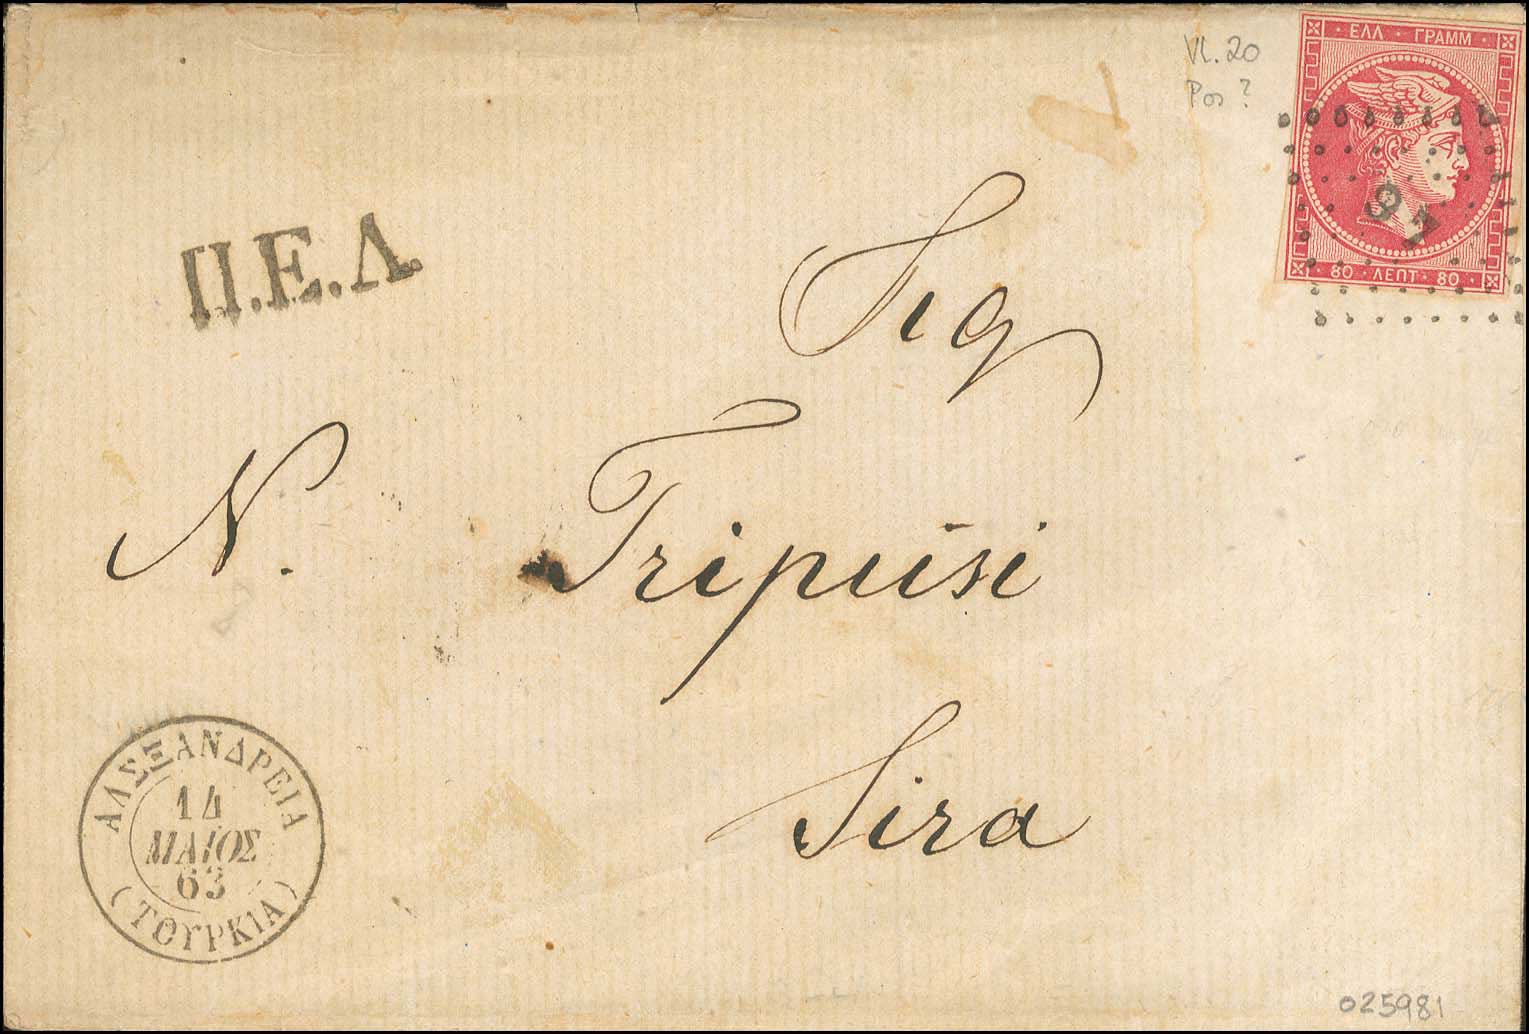 Vl. 20
Pos ?
ΕΛΛ · ΓΡΑΜΜ
80 · ΛΕΠΤ · 80
Π.Ε.Λ.
Sig
N. Tripusi
Sira
ΑΛΕΞΑΝΔΡΕΙΑ
14
ΜΑΪΟΣ
63
(ΤΟΥΡΚΙΑ)
025981